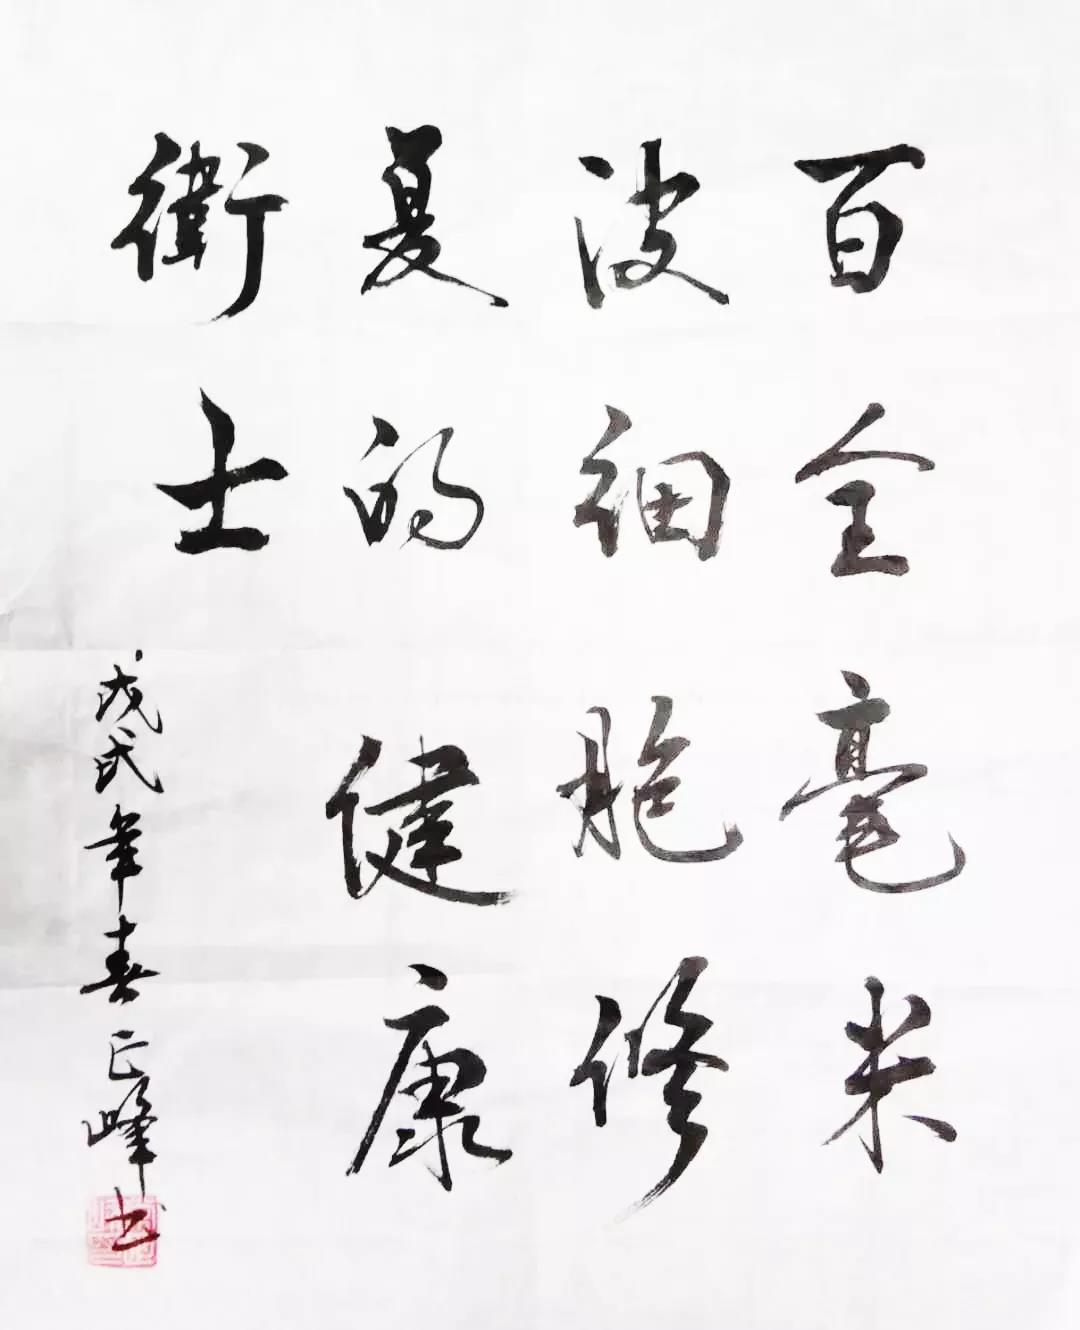 百全毫米
波细胞修
复的健康
衛士
戊戌年春正峰书